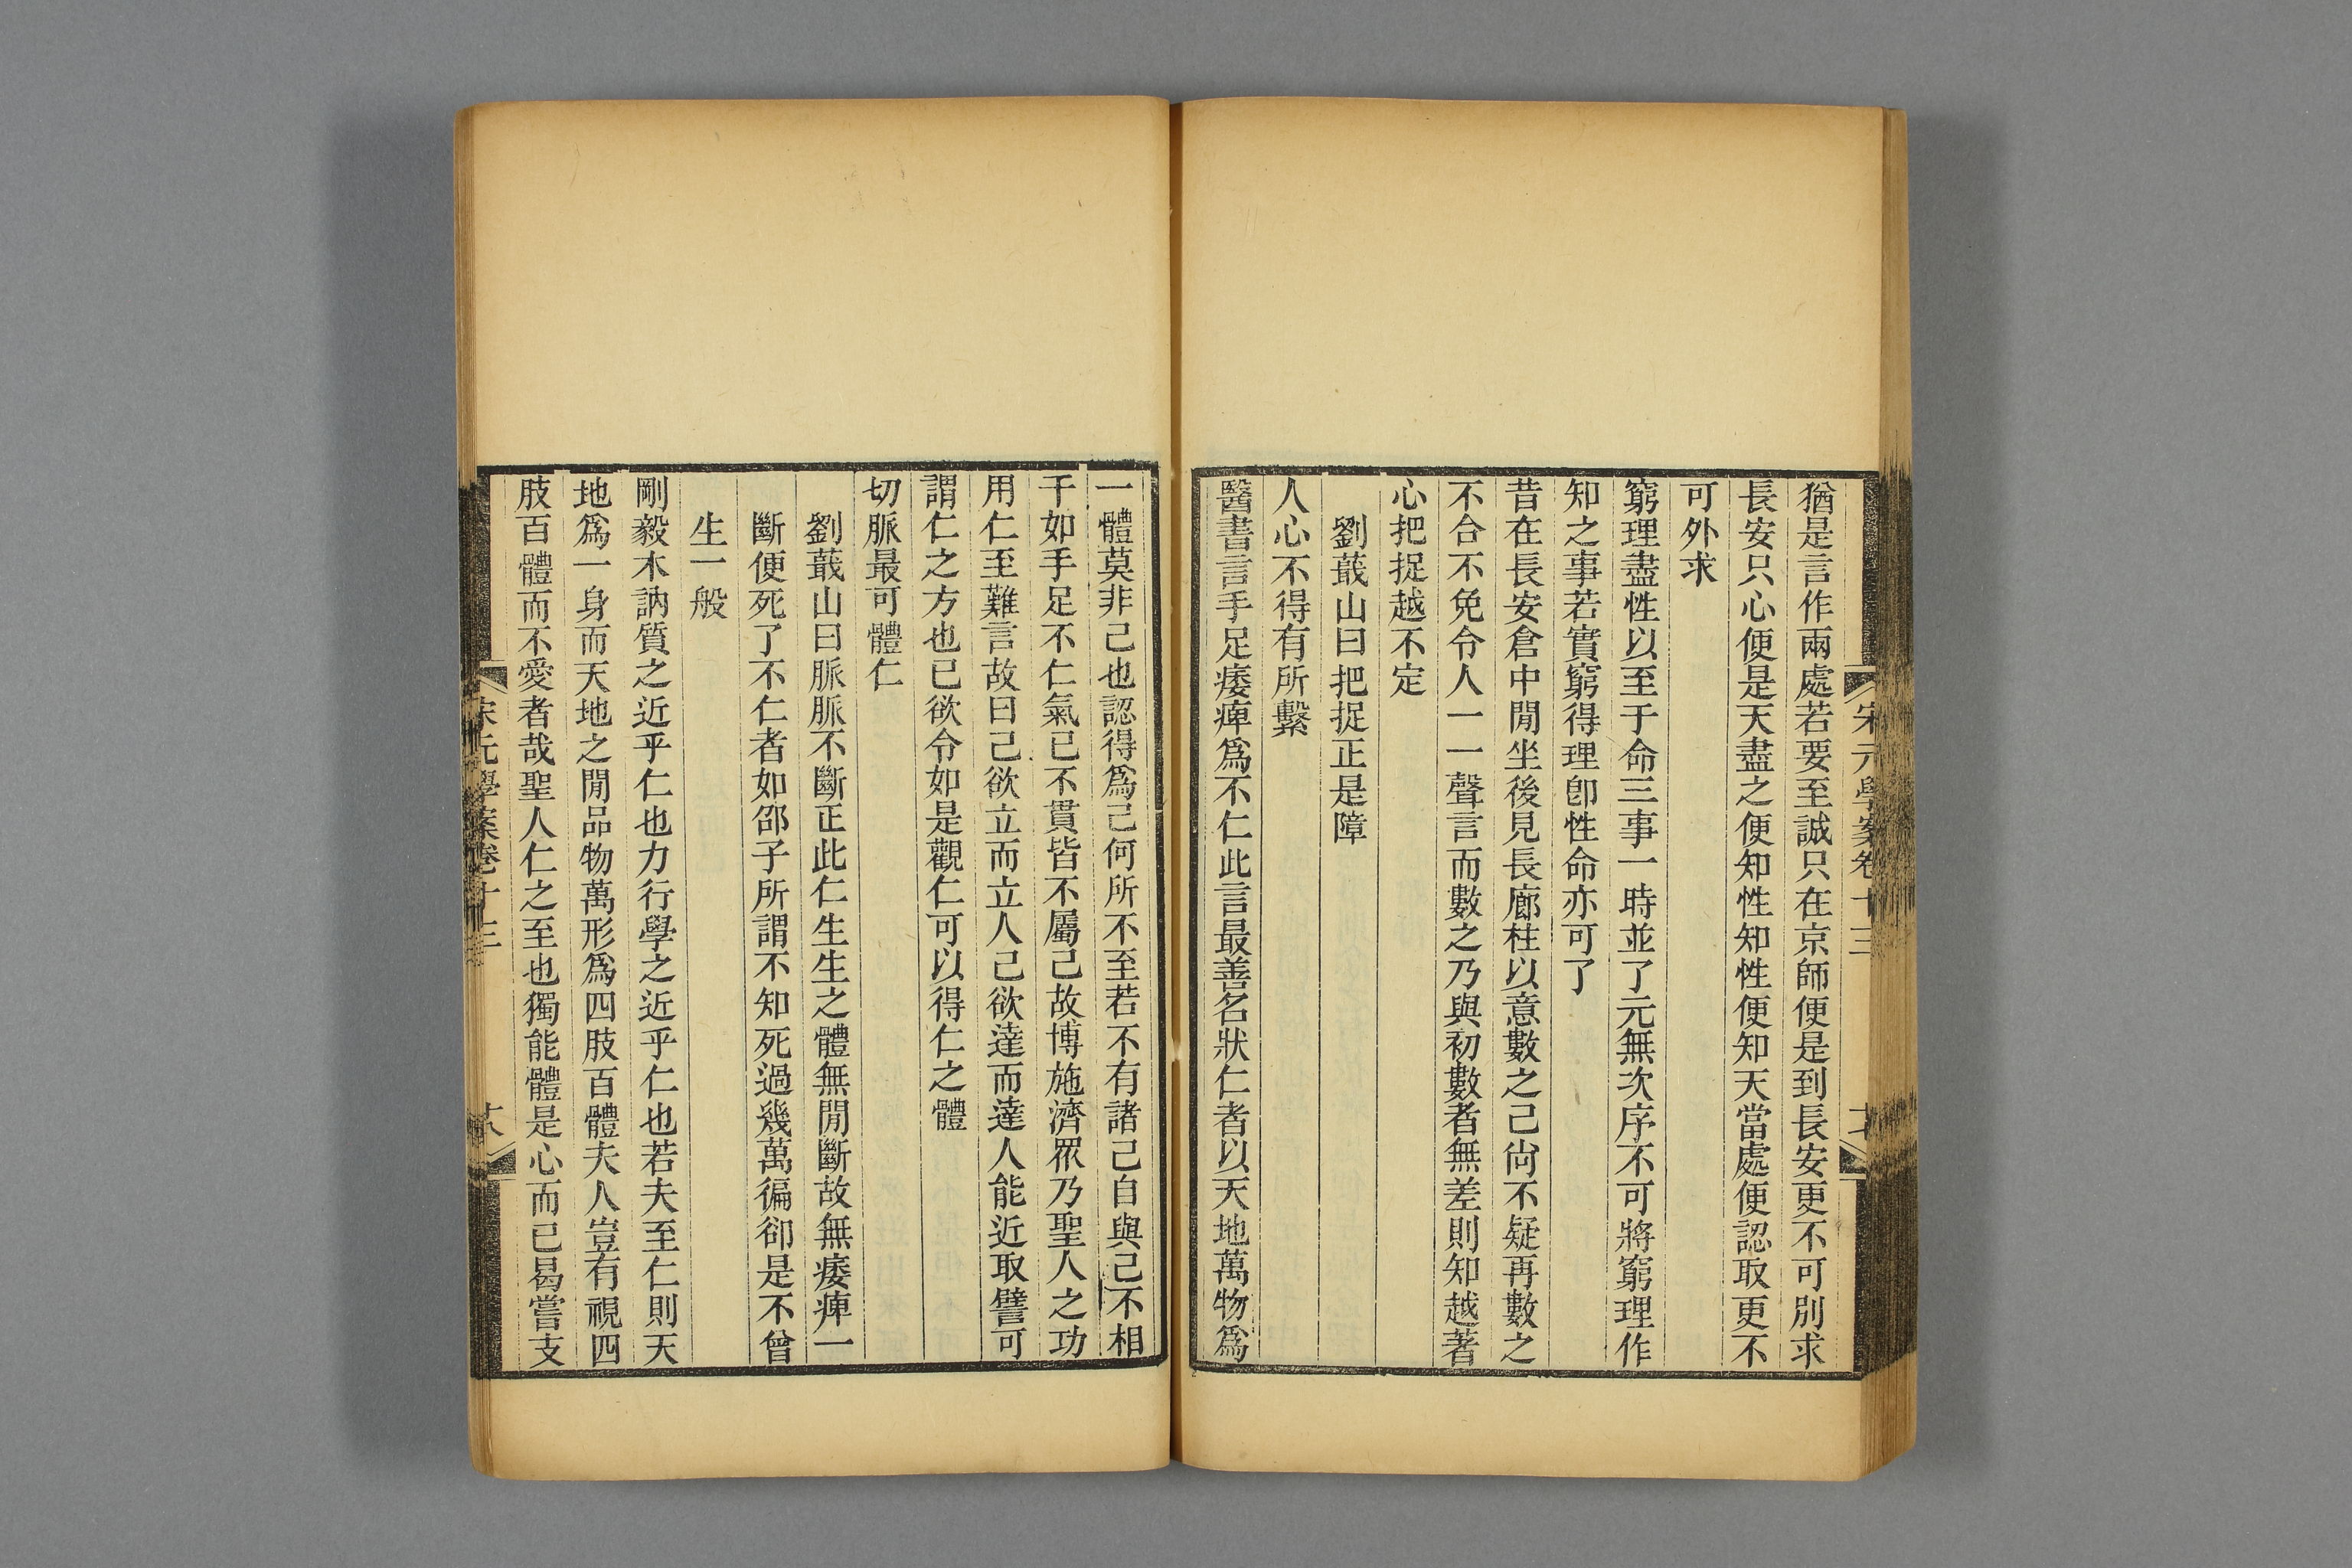 宋元學案卷十三
猶是言作兩處若要至誠只在京師便是到長安更不可別求
長安只心便是天盡之便知性知性便知天當處便認取更不
可外求
窮理盡性以至于命三事一時並了元無次序不可將窮理作
知之事若實窮得理卽性命亦可了
昔在長安倉中閒坐後見長廊柱以意數之己尙不疑再數之
不合不免令人一一聲言而數之乃與初數者無差則知越著
心把捉越不定
劉蕺山曰把捉正是障
人心不得有所繫
醫書言手足痿痺爲不仁此言最善名狀仁者以天地萬物爲
一體莫非己也認得爲己何所不至若不有諸己自與己不相
干如手足不仁氣已不貫皆不屬己故博施濟眾乃聖人之功
用仁至難言故曰己欲立而立人己欲達而達人能近取譬可
謂仁之方也已欲令如是觀仁可以得仁之體
切脈最可體仁
劉蕺山曰脈脈不斷正此仁生生之體無閒斷故無痿痺一
斷便死了不仁者如邵子所謂不知死過幾萬徧卻是不曾
生一般
剛毅木訥質之近乎仁也力行學之近乎仁也若夫至仁則天
地爲一身而天地之閒品物萬形爲四肢百體夫人豈有視四
肢百體而不愛者哉聖人仁之至也獨能體是心而已曷嘗支
宋元學案卷十三